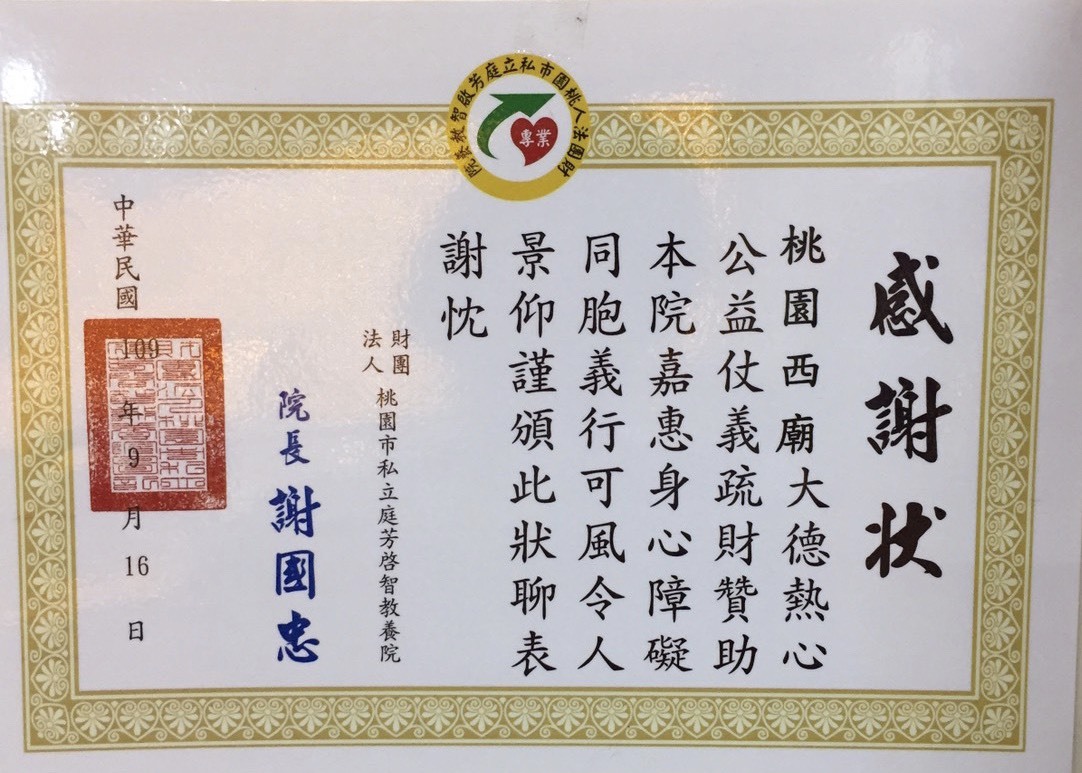 財團法人桃園市私立庭芳啟智教養院
專業
感謝狀
桃園西廟大德熱心
公益仗義疏財贊助
本院嘉惠身心障礙
同胞義行可風令人
景仰謹頒此狀聊表
謝忱
財團法人 桃園市私立庭芳啓智教養院
院長 謝國忠
中華民國 109 年 9 月 16 日